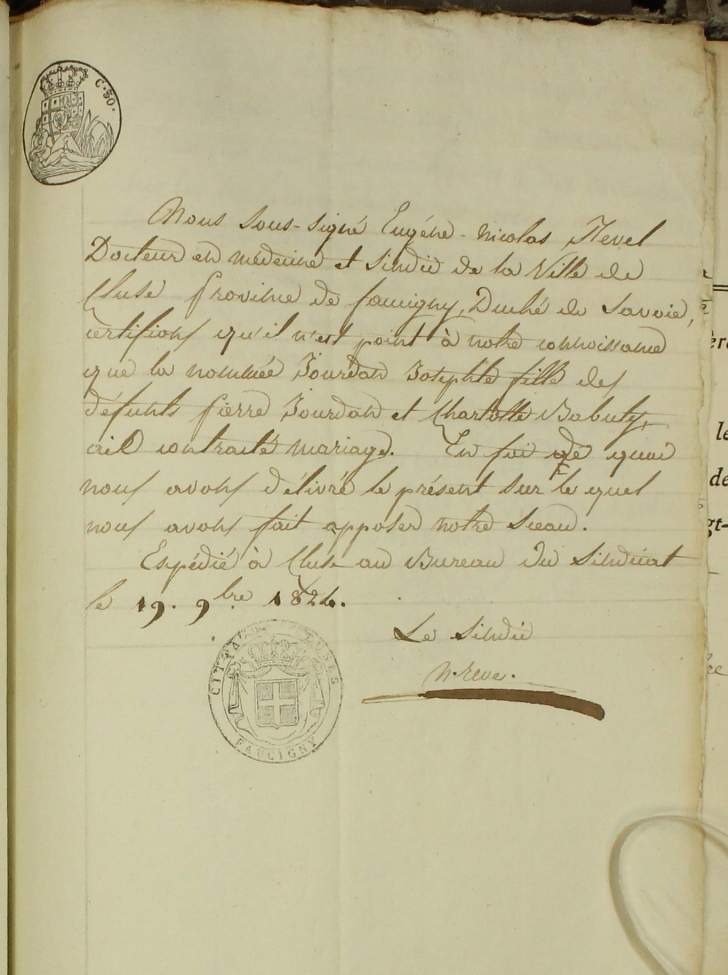 C. 50.
Nous sous-signé Eugéne-Nicolas
Docteur en medecine et Sindic de la Ville de
Cluse Province de faucigny, Duché de Savoie,
certifions qu'il n'est point à notre connoissance
que la nommée Jourdan Josephte fille des
défunts Pierre Jourdan et Charlotte Babuty,
ait contracté mariage. En foi de quoi
nous avons délivré le présent sur le quel
nous avons fait apposer notre Sceau.
Expédié à Cluse au Bureau du Sindicat
le 19. 9bre 1824.
Le Sindic
CITTA
FAUCIGNY
le
de
gt-